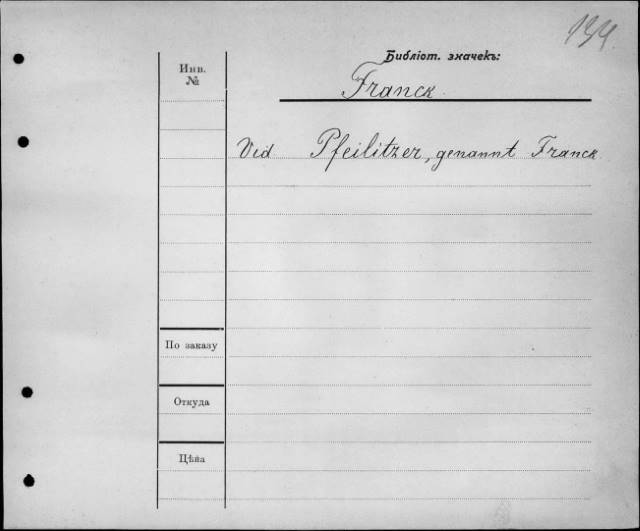 134.
Библіот. значекъ:
Инв. №
Franck
Vid Pfeilitzer, genannt Franck
По заказу
Откуда
Цѣна